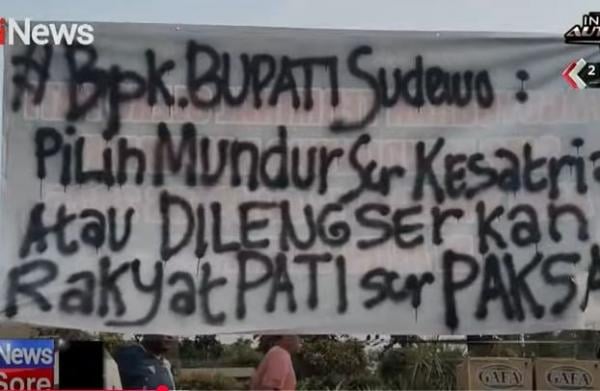 iNews
IN
AUT
2
# Bpk. BUPATI Sudewo :
PiLih Mundur Scr KESATRIA
Atau DILENGSERKAN
RakyatPATI scr PAKSA
News
Sore
GAEA
GAEA